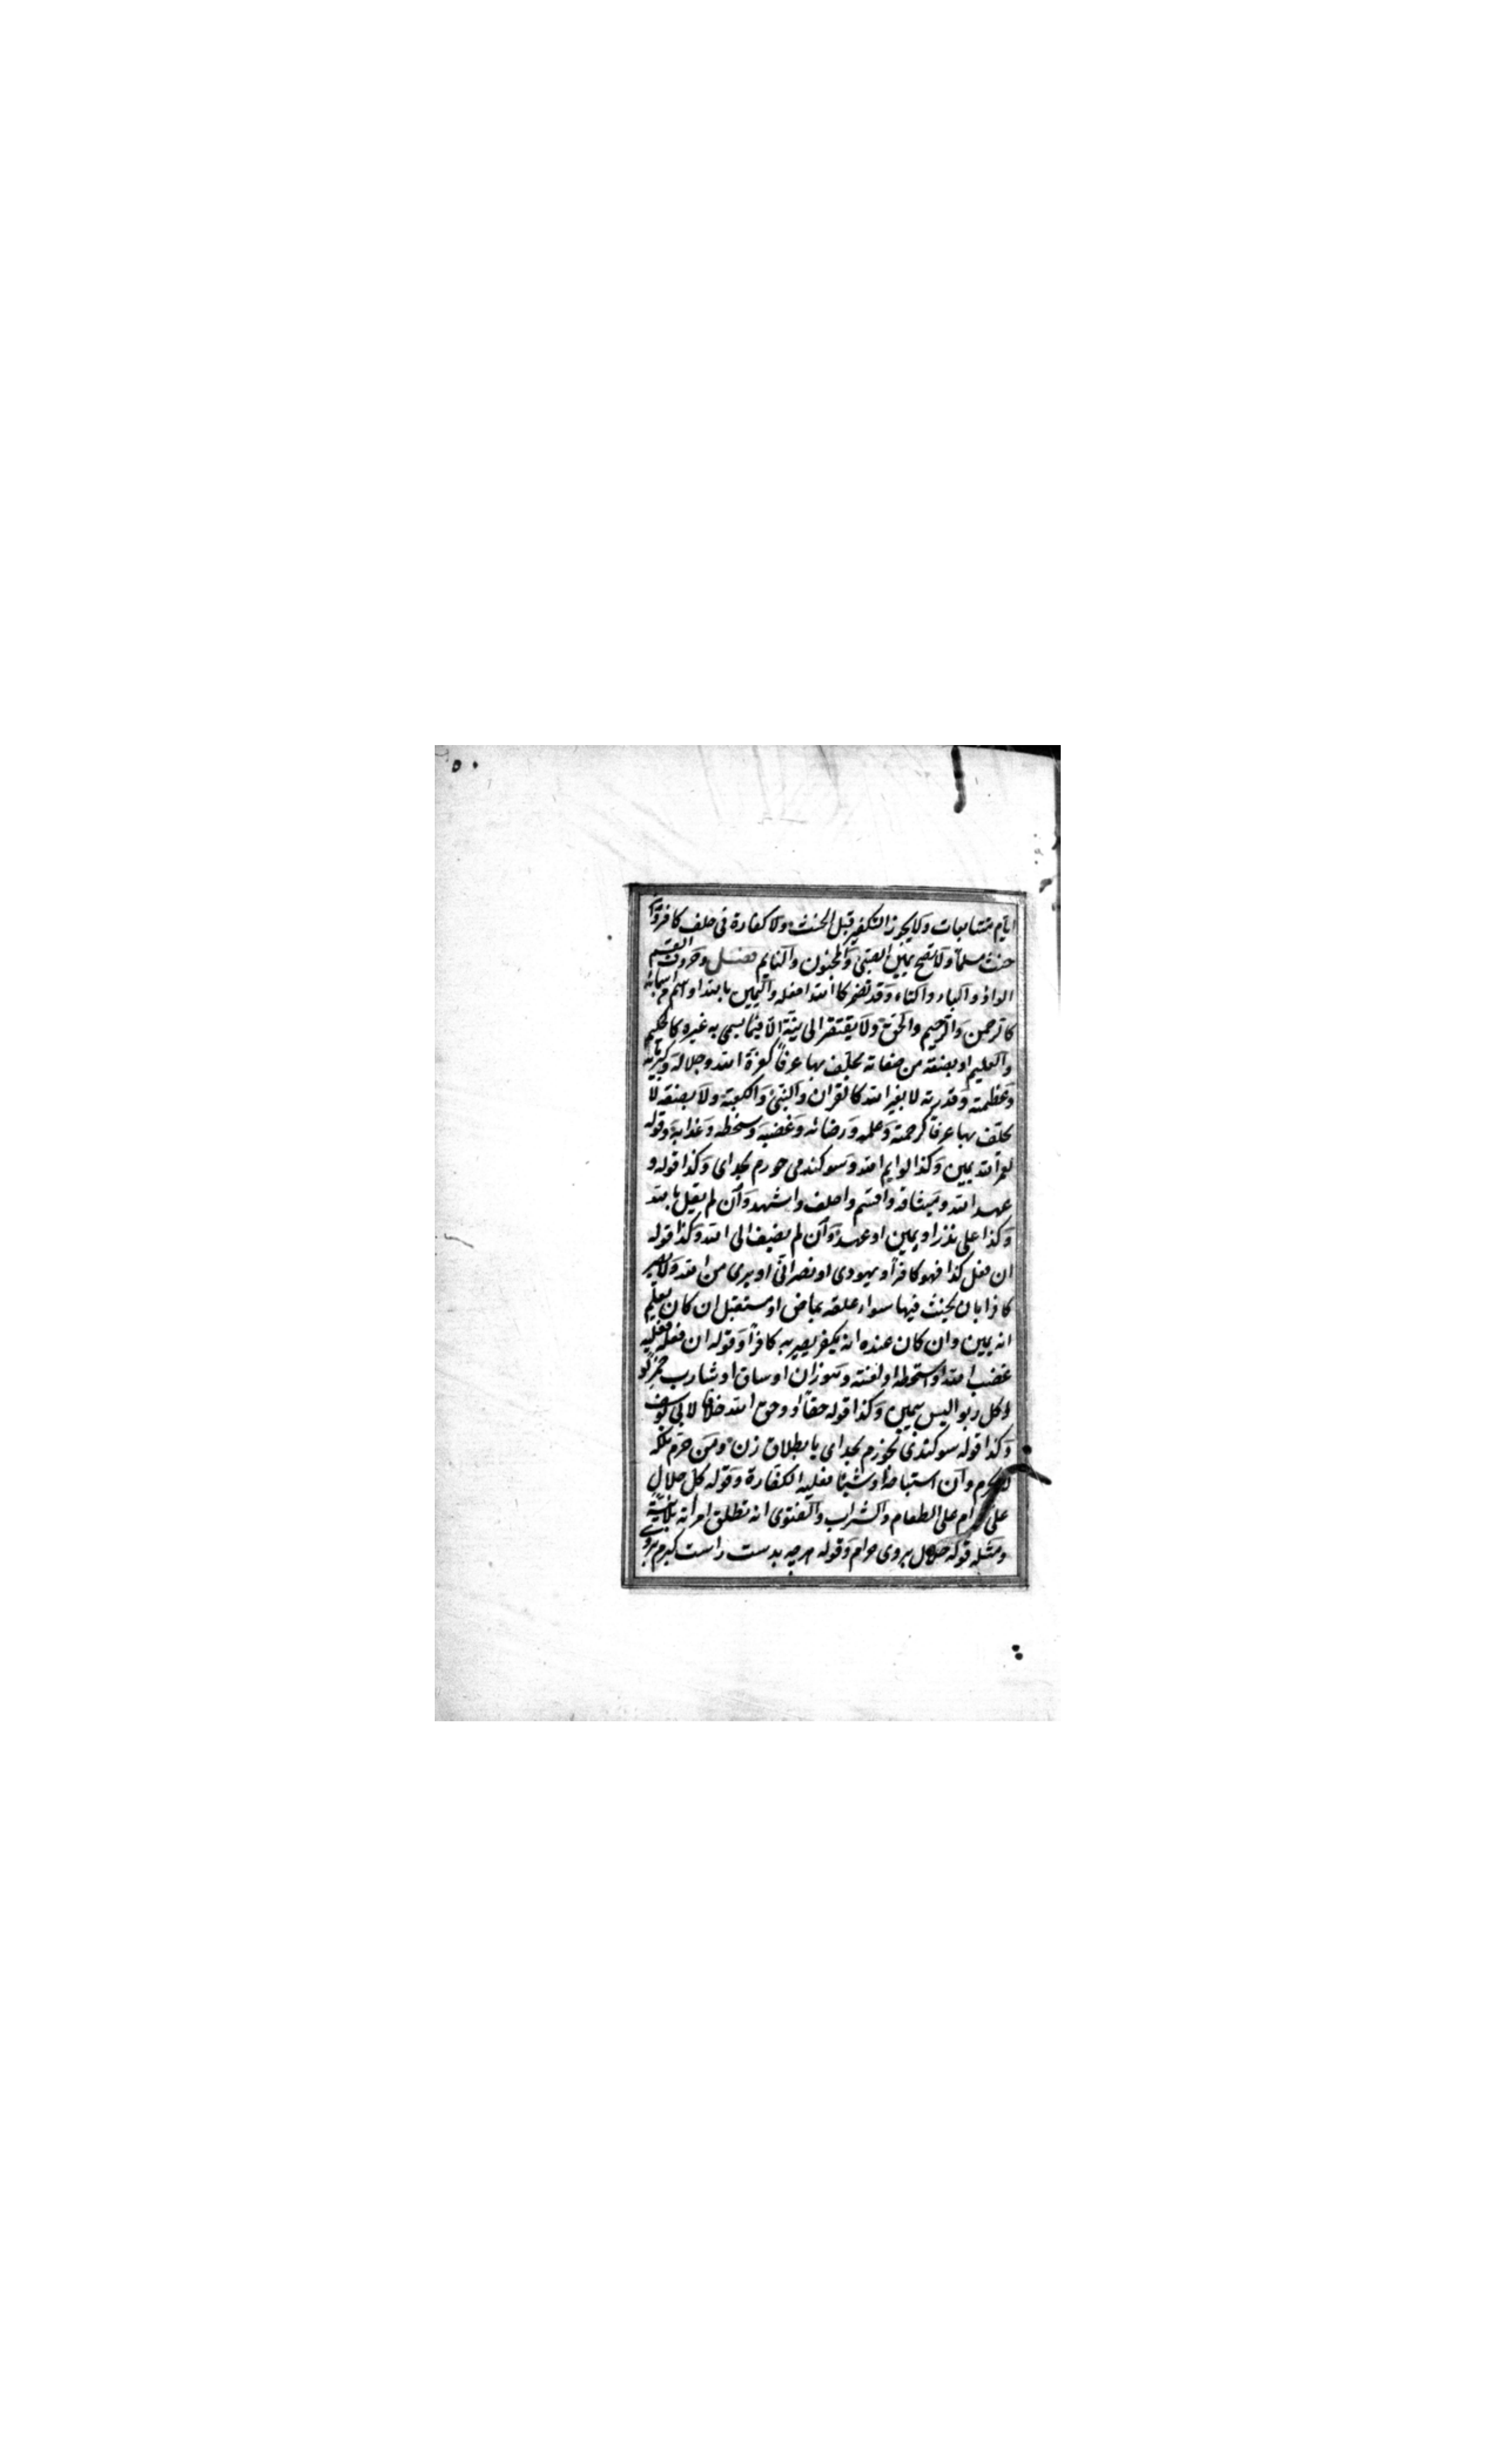 ٥٠
ايام متتابعات ولا يجوز التكفير قبل الحنث ولا كفارة فى حلف كافر وان
حنث مسلما ولا تصح يمين الصبى والمجنون والنايم فصل وحروف القسم
الواو والباء والتاء وقد تضمر كالله افعله واليمين بالله او باسم من اسمائه
كالرحمن والرحيم والحق ولا يفتقر الى نية الا فيما يسمى به غيره كالحكيم
والعليم او بصفة من صفاته يحلف بها عرفا كعزة الله وجلاله وكبريائه
وعظمته وقدرته لا بغير الله كالقران والنبى والكعبة ولا بصفة لا
يحلف بها عرفا كرحمته وعلمه ورضائه وغضبه وسخطه وعذابه وقوله
لعمر الله يمين وكذا وايم الله وسوكند مى خورم بخداى وكذا قوله و
عهد الله وميثاقه واقسم واحلف واشهد وان لم يقل بالله
وكذا على نذر او يمين او عهد وان لم يضف الى الله وكذا قوله
ان فعل كذا فهو كافر او يهودى او نصرانى او برى من الله ولا يصير
كافرا بان يحنث فيها سواء علقه بماض او مستقبل ان كان يعلم
انه يمين وان كان عنده انه يكفر يصير به كافرا وقوله ان فعله فعليه
غضب الله او سخطه او لعنته وهو زان او سارق او شارب خمر او
اكل ربوا ليس بيمين وكذا قوله حقا او وحق الله خلافا لابى يوسف
وكذا قوله سوكند خورم بخداى يا بطلاق زن ومن حرم ملكه
لا يحرم وان استباحه او شيئا فعليه الكفارة وقوله كل حلال
على حرام على الطعام والشراب والفتوى انه تطلق امراته بلا نية
ومثله قوله حلال بروى حرام وقوله هرچه بدست راست كيرم بروى